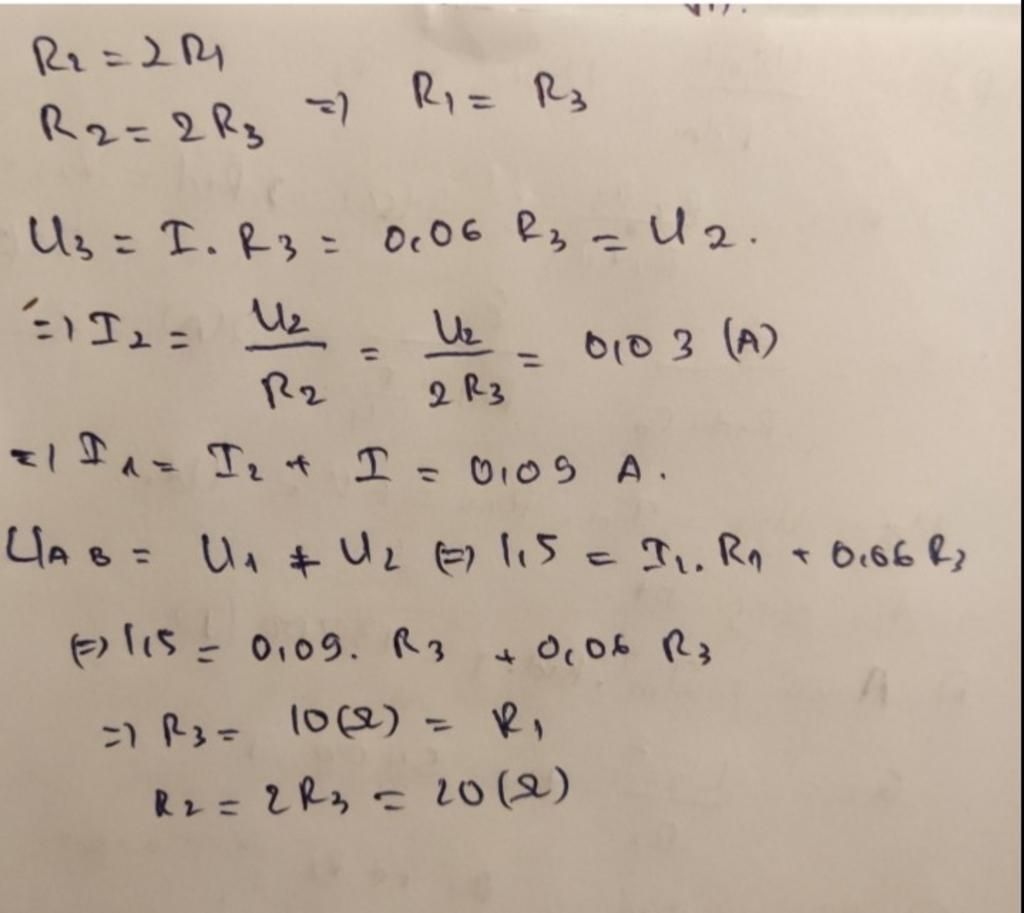 R2 = 2 R1
R2 = 2 R3 => R1 = R3
U3 = I. R3 = 0,06 R3 = U2.
=> I2 = U2/R2 = U2/2R3 = 0,03 (A)
=> I1 = I2 + I = 0,09 A.
UAB = U1 + U2 (=) 1,5 = I1. R1 + 0,06 R3
(=) 1,5 = 0,09. R3 + 0,06 R3
=> R3 = 10(Ω) = R1
R2 = 2R3 = 20(Ω)